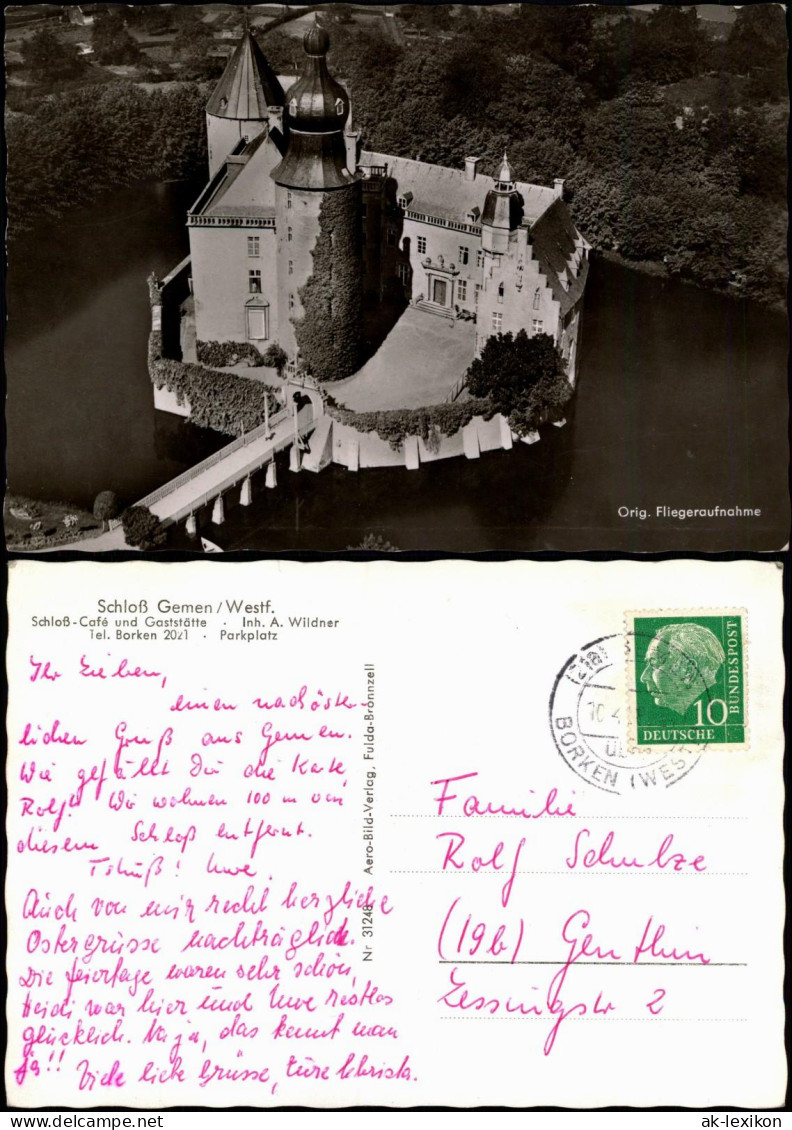 Orig. Fliegeraufnahme
Schloß Gemen/Westf.
Schloß-Café und Gaststätte · Inh. A. Wildner
Tel. Borken 2021 · Parkplatz
Ihr Lieben,
einen nachöster-
lichen Gruß aus Gemen.
Wie gefällt Dir die Karte,
Rolf? Wir wohnen 100 m von
diesem Schloß entfernt.
Tschüß! Uwe.
Auch von mir recht herzliche
Ostergrüsse nachträglich.
Die Feiertage waren sehr schön,
Heidi war hier und Uwe restlos
glücklich. Na ja, das kennt man
ja!! Viele liebe Grüsse, Eure Christa.
Nr 31248 Aero-Bild-Verlag, Fulda-Bronnzell
10
DEUTSCHE
BUNDESPOST
BORKEN (WESTF
Familie
Rolf Schulze
(19b) Genthin
Lessingstr 2
ak-lexikon
www.ak-ansichtskarten.de